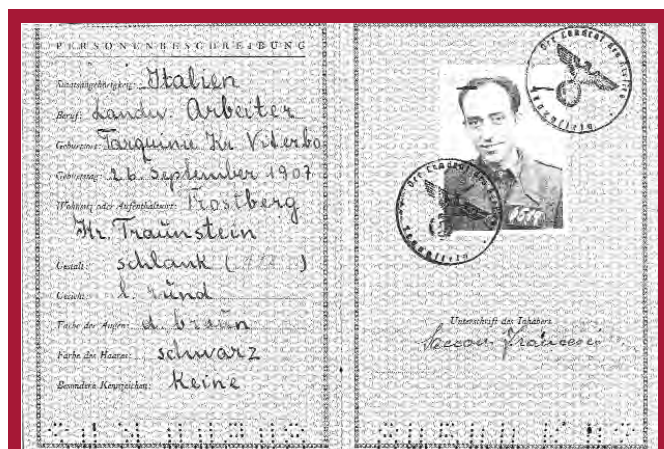 PERSONENBESCHREIBUNG
Staatsangehörigkeit: Italien
Beruf: Landw. Arbeiter
Geburtsort: Tarquinia Kr Viterbo
Geburtstag: 26. September 1907
Wohnsitz oder Aufenthaltsort: Trostberg
Kr. Traunstein
Gestalt: schlank ( )
Gesicht: l. rund
Farbe der Augen: d. braun
Farbe des Haares: schwarz
Besondere Kennzeichen: Keine
Der Landrat des Kreises
Traunstein
Der Landrat des Kreises
Traunstein
Unterschrift des Inhabers